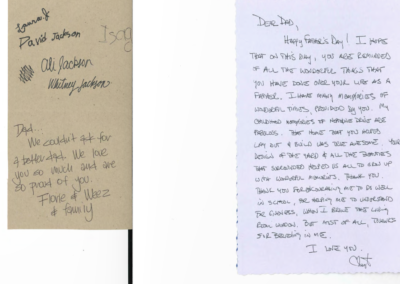 David Jackson
Ali Jackson
Whitney Jackson
Dad
We couldn't ask for
a better dad. We love
you so much and are
so proud of you.
& Weez
& family
Dear Dad,
Happy Father's Day! I hope
that on this day, you are reminded
of all the wonderful things that
you have done over your life as a
father. I have many memories of
wonderful times, provided by you. My
childhood memories of home are
fabulous. The home that you
lay out & build was true awesome. Your
design of the yard & all the
that surrounded helped us all to grow up
with wonderful memories. Thank you.
Thank you for me to do well
in school, for me to understand
finances, when I
. But most of all, thanks
for believing in me.
I love you.